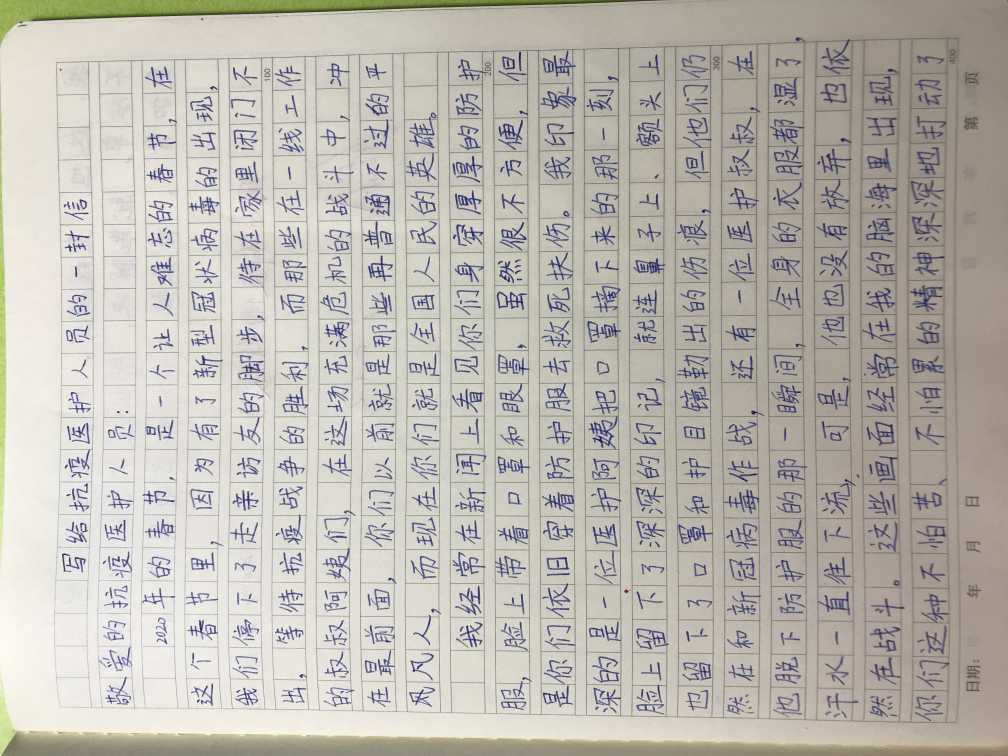 写给抗疫医护人员的一封信
敬爱的抗疫医护人员：
2020年的春节，是一个让人难忘的春节，在
这个春节里，因为有了新型冠状病毒的出现，
我们停下了走亲访友的脚步，待在家里闭门不
出，等待抗疫战争的胜利，而那些在一线工作
的叔叔阿姨们，在这场充满危机的战斗中，冲
在最前面，你们以前就是那些再普通不过的平
凡凡人，而现在你们就是全国人民的英雄。
我经常在新闻上看见你们身穿厚厚的防护
服，脸上带着口罩和眼罩，虽然很不方便，但
是你们依旧穿着防护服去救死扶伤。我印象最
深的是一位医护阿姨把口罩摘下来的那一刻，
脸上留下了深深的印记，就连鼻子上、额头上
也留下了口罩和护目镜勒出的伤痕，但他们仍
然在和新冠病毒作战，还有一位医护叔叔，在
他脱下防护服的那一瞬间，全身的衣服都湿了，
汗水一直往下流，可是，他也没有放弃，也依
然在战斗。这些画面经常在我的脑海里出现，
你们这种不怕苦、不怕累的精神深深地打动了
100
200
300
400
日期： 年 月 日
第 页